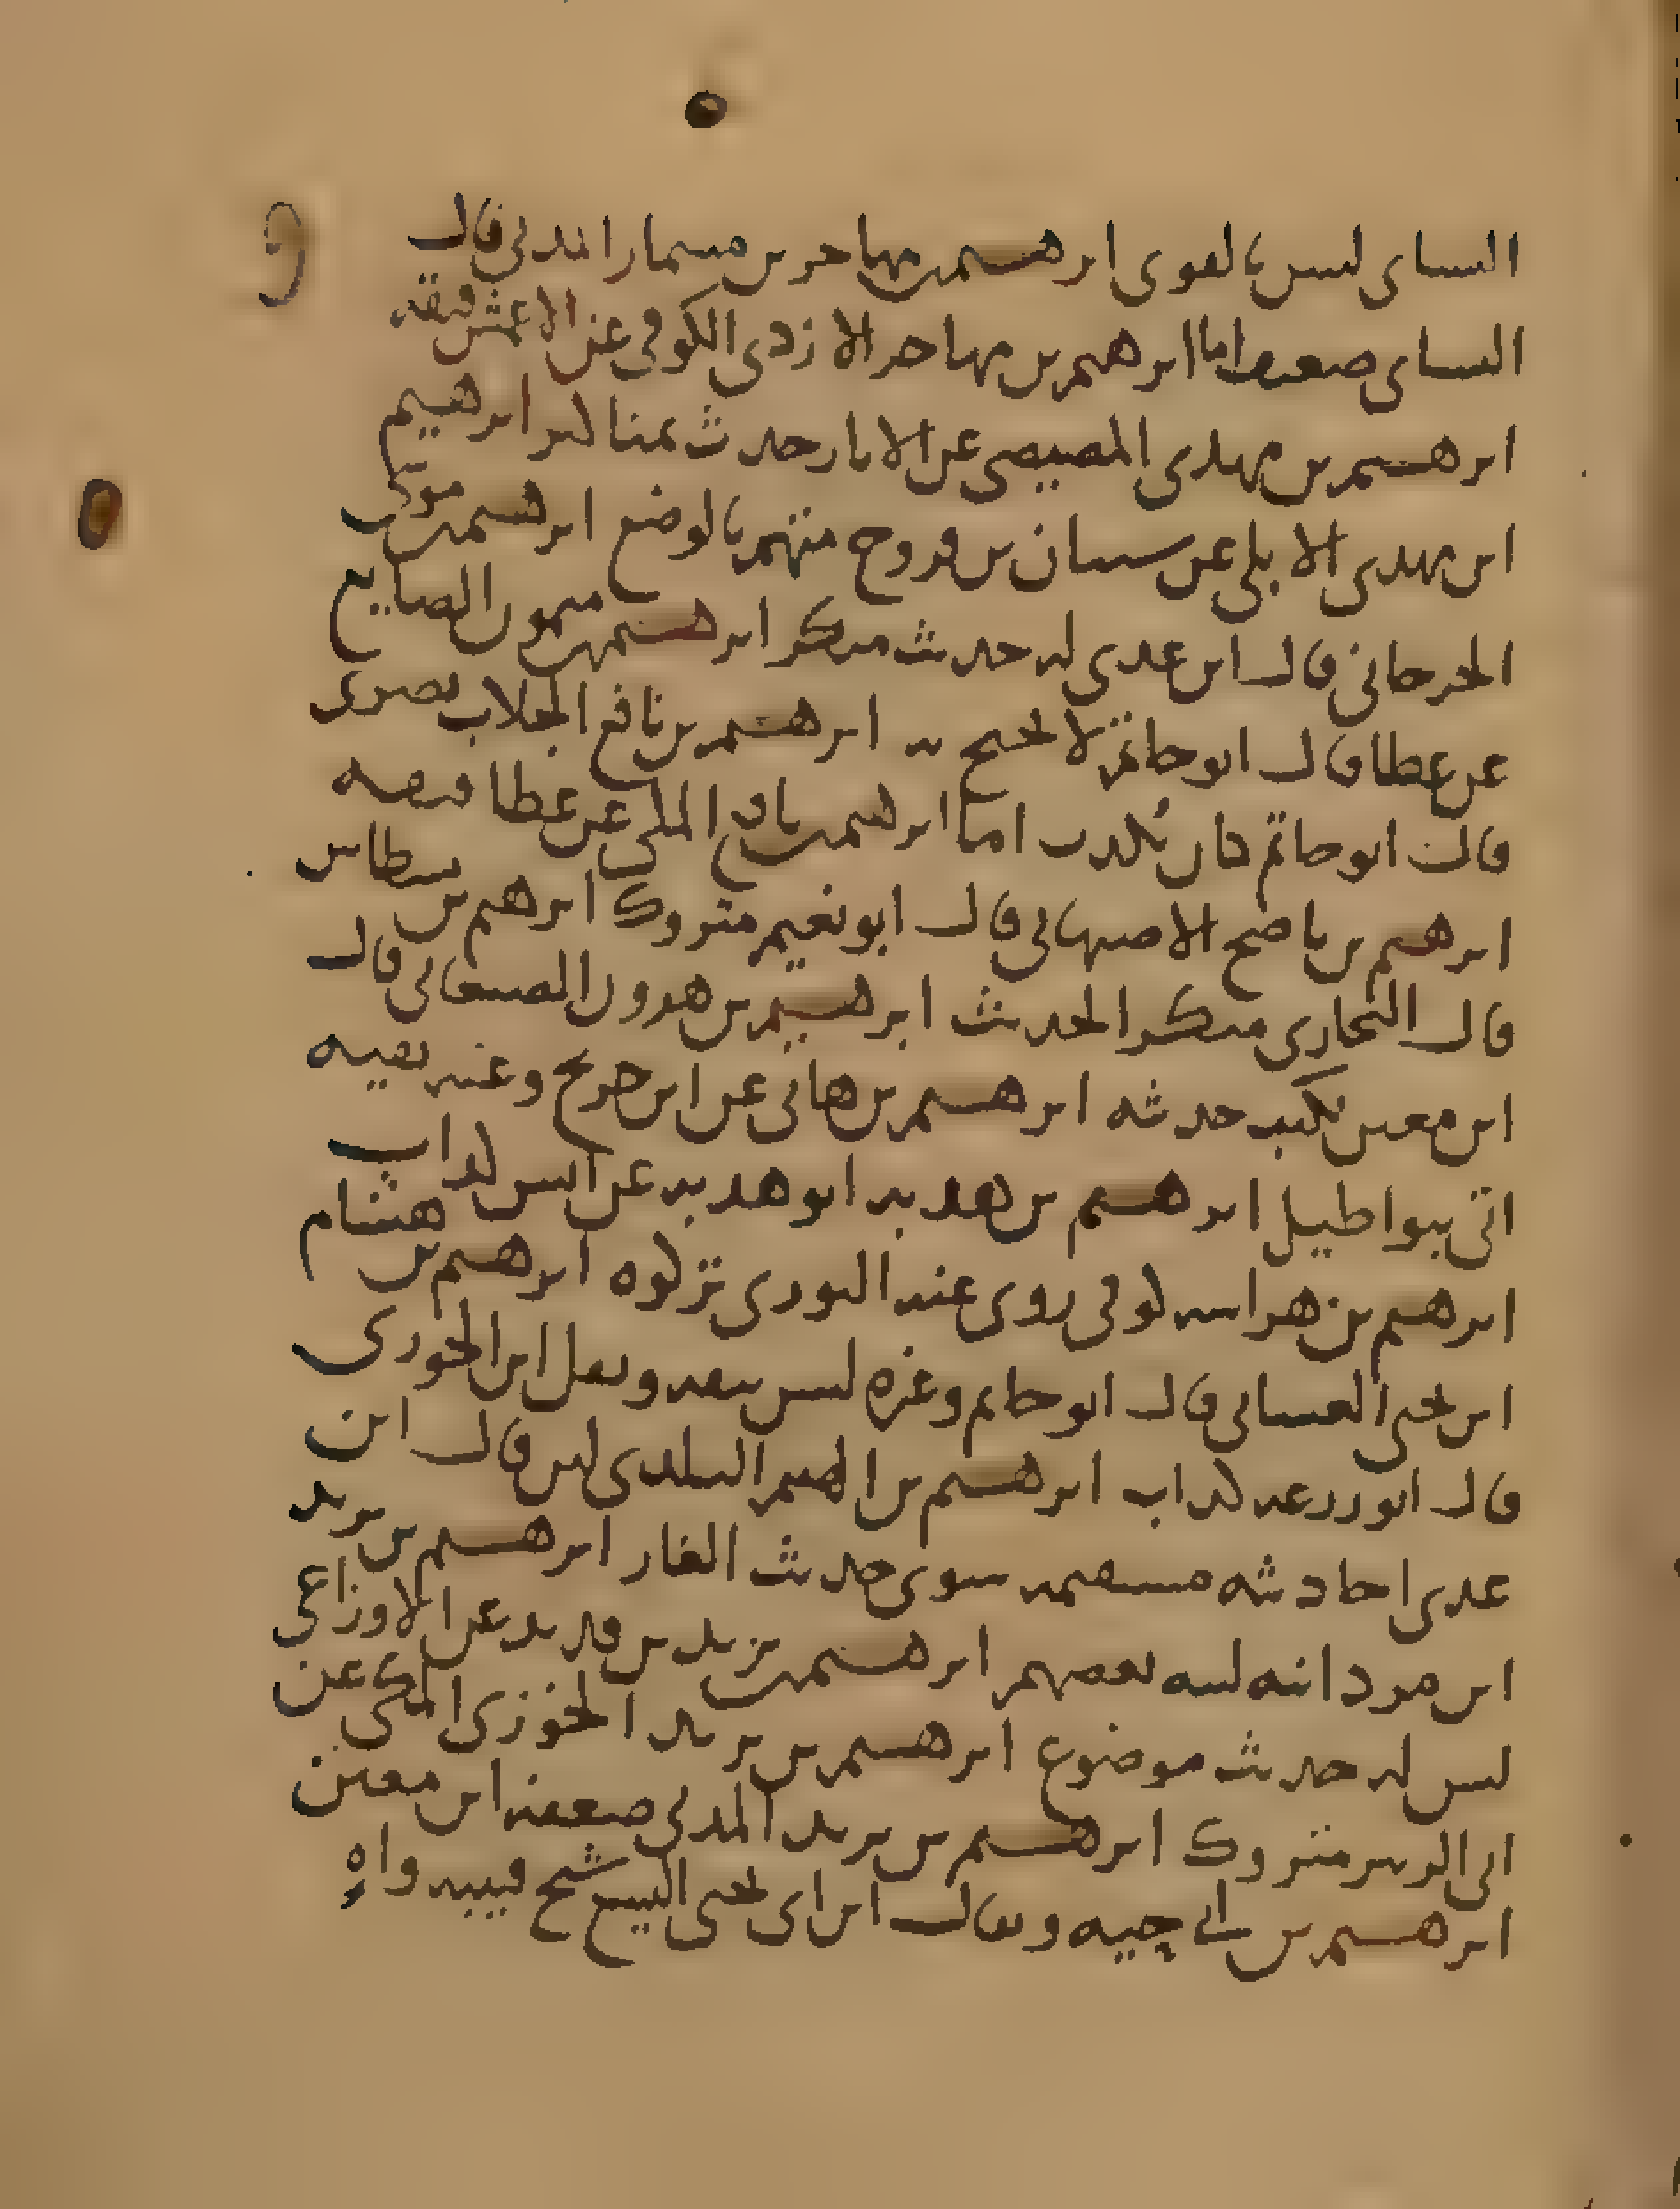 النساي ليس بالقوي ابرهيم بن مهاجر بن مسمار المدني قال
النساي ضعيف اما ابرهيم بن مهاجر الازدي الكوفي عن الاعمش فثقه
ابرهيم بن مهدي المصيصي عن الابار حديث منكر ابرهيم
ابن مهدي الابلي عن سيبان بن فروخ متهم بالوضع ابرهيم بن موسى
الجرجاني قال ابن عدي له حديث منكر ابرهيم بن ميمون الصايع
عن عطا قال ابو حاتم لا يحتج به ابرهيم بن نافع الجلاب بصري
قال ابو حاتم كان يكذب اما ابرهيم بن نافع المكي عن عطا فثقه
ابرهيم بن ناصح الاصبهاني قال ابو نعيم متروك ابرهيم بن بسطاس
قال البخاري منكر الحديث ابرهيم بن هرون الصنعاني قال
ابن معين يكتب حديثه ابرهيم بن هاني عن ابن جريج وعنه بقيه
اتى ببواطيل ابرهيم بن هدبه ابو هدبه عن انس كذاب
ابرهيم بن هراسه كوفي روى عنه الثوري تركوه ابرهيم بن هشام
ابن يحيى الغساني قال ابو حاتم وغيره ليس بثقه ونقل ابن الجوزي
قال ابو زرعه كذاب ابرهيم بن الهيثم البلدي لين قال ابن
عدي احاديثه مستقيمه سوى حديث الغار ابرهيم بن يزيد
ابن مردانبه لينه بعضهم ابرهيم بن يزيد بن قديد عن الاوزاعي
ليس له حديث موضوع ابرهيم بن يزيد الخوزي المكي عن
ابي الزبير متروك ابرهيم بن يزيد المدني ضعفه ابن معين
ابرهيم بن ابي حيه ويقال ابن ابي يحيى اليسع شيخ قتيبه واهٍ